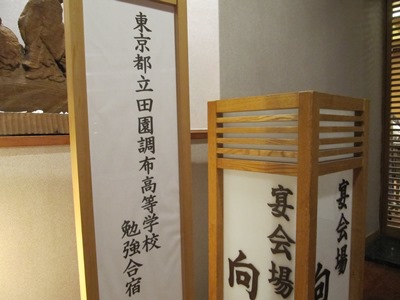 東京都立田園調布高等学校
勉強合宿
宴会場
向
宴会場
向